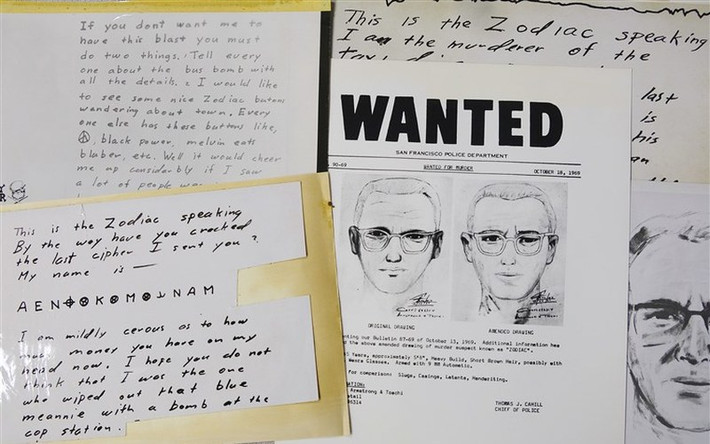 If you dont want me to
have this blast you must
do two things. Tell every
one about the bus bomb with
all the details. I would like
to see some nice Zodiac butons
wandering about town. Every
one else has these buttons like,
black power, melvin eats
bluber, etc. Well it would cheer
me up considerbly if I saw
a lot of people
This is the Zodiac speaking
I am the murderer of the
last
is
his
an
This is the Zodiac speaking
By the way have you cracked
the last cipher I sent you?
My name is —
AEN⌖⊗K⊗M⊗⅃NAM
I am mildly cerous as to how
much money you have on my
head now. I hope you do not
think that I was the one
who wiped out that blue
meannie with a bomb at the
cop station.
WANTED
SAN FRANCISCO POLICE DEPARTMENT
90-69 WANTED FOR MURDER OCTOBER 18, 1969
ORIGINAL DRAWING AMENDED DRAWING
our Bulletin 87-69 of October 13, 1969. Additional information has
the above amended drawing of murder suspect known as "ZODIAC".
Years, approximately 5'8", Heavy Build, Short Brown Hair, possibly with
Wears Glasses. Armed with 9 MM Automatic.
for comparison: Slugs, Casings, Latents, Handwriting.
Armstrong & Toschi
THOMAS J. CAHILL
CHIEF OF POLICE